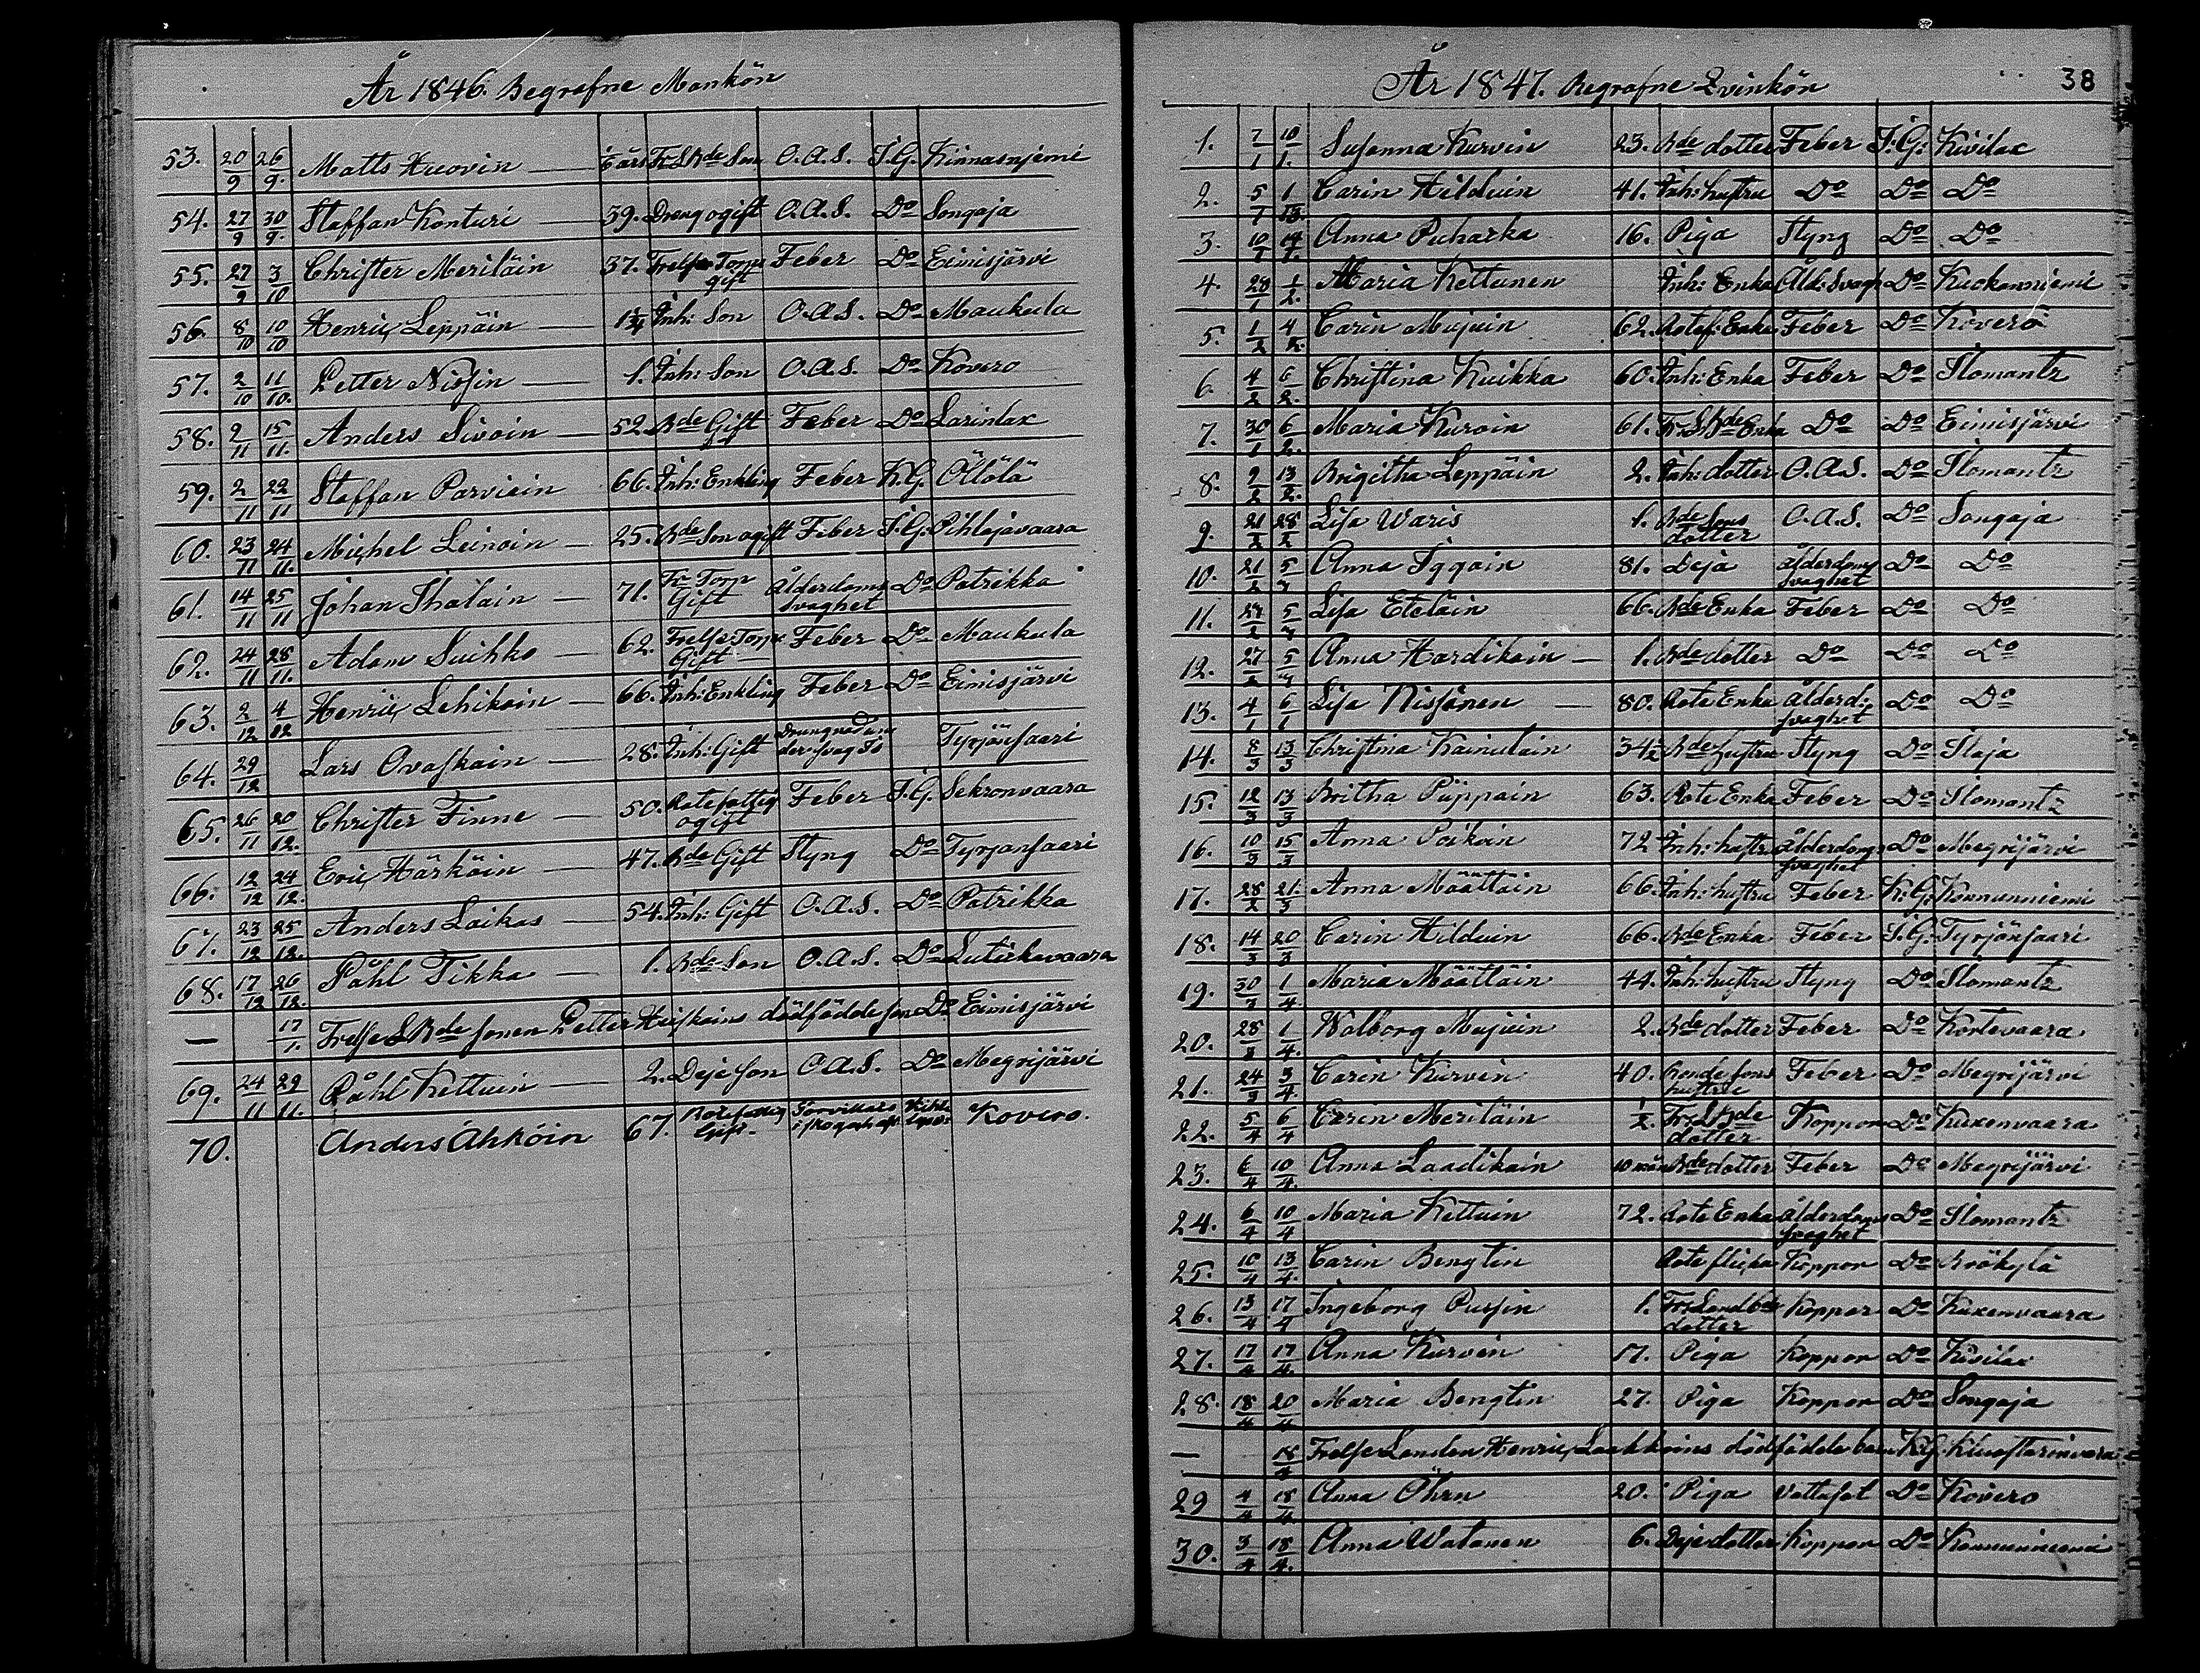 År 1846. Begrafne Mankön
53. 20/9 26/9. Matts Kuovin — Fr. L. Bde Son O.A.S. I.G. Kinnasnjemi
54. 27/9 30/9. Staffan Konturi — 39. Dreng ogift O.A.S. Do Songaja
55. 27/9 3/10 Christer Meriläin 37. Frelse Torp gift Feber Do Eimisjärvi
56. 8/10 10/10 Henric Leppäin — 1 1/4 Inh: Son O.A.S. Do Maukula
57. 2/10 11/10. Petter Nissin — 1. Inh: Son O.A.S. Do Kovero
58. 9/11 15/11. Anders Sivoin — 52. Bde Gift Feber Do Larinlax
59. 2/11 22/11 Staffan Parviain 66. Inh: Enkling Feber K.G. Öllölä
60. 23/11 24/11. Michel Leinoin — 25. Bde Son ogift Feber I.G. Pihlajavaara
61. 14/11 25/11 Johan Ihalain — 71. Fr Torp Gift Ålderdoms svaghet Do Patrikka
62. 24/11 28/11. Adam Suihko — 62. Frelse Torp Gift — Feber Do Maukula
63. 2/12 4/12 Henric Lehikoin — 66. Inh: Enkling Feber Do Eimisjärvi
64. 29/12 Lars Ovaskain — 28. Inh: Gift Tyrjänsaari
65. 26/11 20/12. Christer Finne — 50. Rotefattig ogift Feber I.G. Sekronvaara
66. 12/12 24/12. Eric Härköin — 47. Bde Gift Styng Do Tyrjänsaari
67. 23/12 25/12. Anders Laikas — 54. Inh: Gift O.A.S. Do Patrikka
68. 17/12 26/12. Påhl Tikka — 1. Bde Son O.A.S. Do Lutikkavaara
— 17/1. Frelse L Bde sonen Petter Heiskains dödfödde son Do Eimisjärvi
69. 24/11 29/11. Påhl Kettuin — 2. Deje son O.A.S. Do Megrijärvi
70. Anders Ahköin 67. Rotefattig Gift. Kovero.
År 1847. Begrafne Qvinkön 38
1. 7/1 10/1. Susanna Kurvin 23. Bde dotter Feber I:G: Kivilax
2. 5/1 Carin Hilduin 41. Inh: hustru Do Do Do
3. 10/1 14/1. Anna Puharka 16. Piga Styng Do Do
4. 28/1 1/2. Maria Kettunen Inh: Enka Åld: Svagh Do Kuokanniemi
5. 1/2 4/2. Carin Mujuin 62. Rotef: Enka Feber Do Kovero
6. 4/2 6/2. Christina Kuikka 60. Inh: Enka Feber Do Ilomantz
7. 30/1 6/2. Maria Kuroin 61. Fr. L Bde Enka Do Do Eimisjärvi
8. 9/2 13/2. Brigitha Leppäin 2. Inh: dotter O.A.S. Do Ilomantz
9. 21/2 28/2 Lisa Waris 1. Bde Sons dotter O.A.S. Do Songaja
10. 21/2 5/3 Anna Iggoin 81. Deja ålderdoms svaghet Do Do
11. 27/2 5/3 Lisa Eteläin 66. Bde Enka Feber Do Do
12. 27/2 5/3 Anna Hardikain — 1. Bde dotter Do Do Do
13. 4/1 6/1 Lisa Nissinen — 80. Rote Enka ålderd: svaghet Do Do
14. 8/3 13/3 Christina Kainulain 34 1/2 Bde hustru Styng Do Ilaja
15. 12/3 13/3 Britha Piippoin 63. Rote Enka Feber Do Ilomantz
16. 10/3 15/3 Anna Poikoin 72 Inh: hustru ålderdoms svaghet Do Megrijärvi
17. 28/2 21/3 Anna Määttäin 66. Inh: hustru Feber K:G: Konnunniemi
18. 14/3 20/3 Carin Hilduin 66. Bde Enka Feber I:G: Tyrjänsaari
19. 30/3 1/4. Maria Määttäin 44. Inh: hustru Styng Do Ilomantz
20. 28/3 1/4. Walborg Mujuin 2. Bde dotter Feber Do Kortevaara
21. 24/3 3/4 Carin Kurvin 40. Bonde sons hustru Feber Do Megrijärvi
22. 5/4 6/4 Carin Meriläin 1/2. Fr. L Bde dotter Koppor Do Kuxenvaara
23. 6/4 10/4. Anna Laadikain 10 mån Bde dotter Feber Do Megrijärvi
24. 6/4 10/4 Maria Kettuin 72. Rote Enka ålderdoms svaghet Do Ilomantz
25. 10/4 13/4. Carin Bengtin Rote flicka Koppor Do Kråkylä
26. 13/4 17/4 Ingeborg Pussin 1. Fr: Landb: dotter Koppor Do Kuxenvaara
27. 17/4 17/4. Anna Kurvin 17. Piga Koppor Do Kivilax
28. 18/4 20/4 Maria Bengtin 27. Piga Koppor Do Songaja
— 18/4 Frelse Landen Henric Laakkoins dödfödde barn K.G.
29 4/4 18/4 Anna Öhrn 20. Piga Vattusot Do Kovero
30. 3/4 18/4. Anna Watanen 6. Deje dotter Koppor Do Konnunniemi